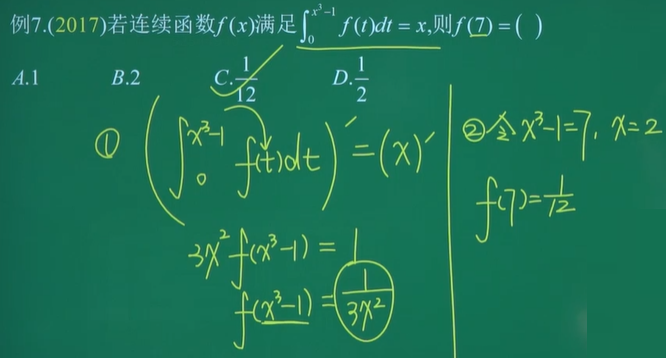 例7.(2017)若连续函数f(x)满足∫₀^{x³−1} f(t)dt = x,则f(7) = ( )
A.1 B.2 C.1/12 D.1/2
① (∫₀^{x³−1} f(t)dt)′ = (x)′
3x² f(x³−1) = 1
f(x³−1) = 1/3x²
② 令 x³−1=7, x=2
f(7)=1/12